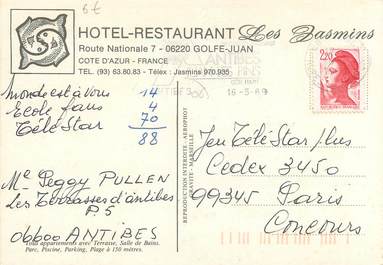 6€
HOTEL-RESTAURANT Les Jasmins
Route Nationale 7 - 06220 GOLFE-JUAN
COTE D'AZUR - FRANCE
TEL. (93) 63.80.83 - Télex : Jasmins 970.935
ANTIBES
16-3-89
2,20
Monde est à vous 14
Ecole fans 4
Télé Star 70
88
Mle Peggy PULLEN
Les Terrasses d'antibes
P.5
06600 ANTIBES
REPRODUCTION INTERDITE - AEROPHOT
Jeu Télé Star plus
Cedex 3450
99345 Paris
Concours
appartements avec Terrasse, Salle de Bains.
Parc, Piscine, Parking, Plage à 150 mètres.